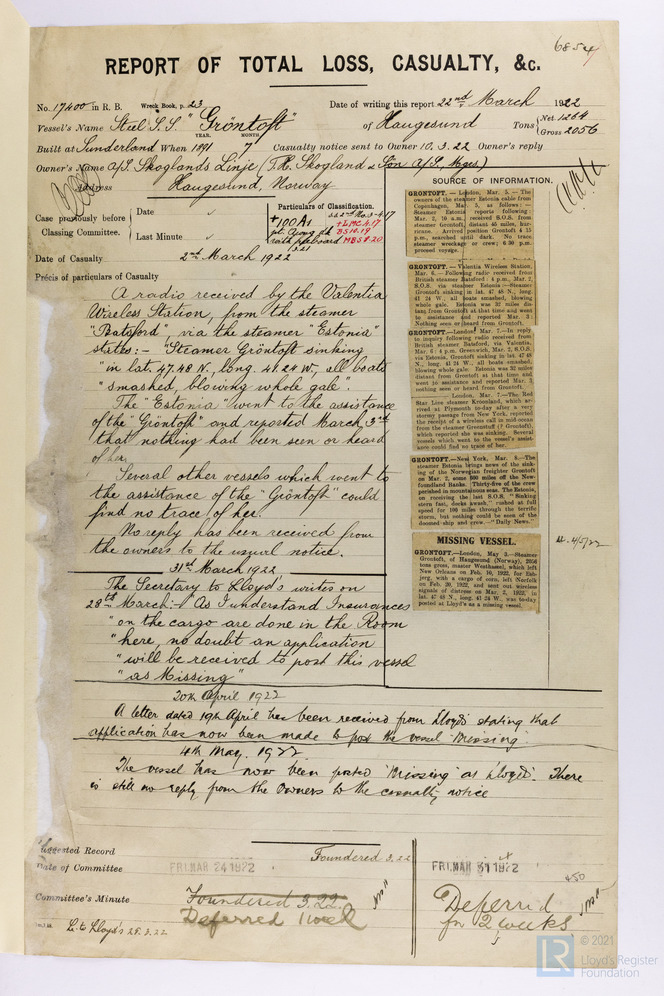 6854
REPORT OF TOTAL LOSS, CASUALTY, &c.
No. 17400 in R. B. Wreck Book, p. 23 Date of writing this report 22nd March 1922
Vessel's Name Steel S.S. "Gröntoft" of Haugesund Tons Net 1264 Gross 2056
Built at Sunderland When 1891 YEAR. 7 MONTH Casualty notice sent to Owner 10.3.22 Owner's reply
Owner's Name A/S Skoglands Linje (T.H. Skogland & Son A/S, Mgrs.)
Address Haugesund, Norway
Case previously before Classing Committee.
Date ✓
Last Minute ✓
Particulars of Classification.
+100A1
+LMC 4.17
BS 10.19
MBS 8.20
3.21
Date of Casualty 2nd March 1922
Précis of particulars of Casualty
A radio received by the Valentia
Wireless Station, from the steamer
"Batsford", via the steamer "Estonia"
states:- "Steamer Gröntoft sinking
"in lat. 47.48 N., long. 41.24 W., all boats
"smashed, blowing whole gale".
The "Estonia" went to the assistance
of the "Gröntoft" and reported March 3rd
that nothing had been seen or heard
of her.
Several other vessels which went to
the assistance of the "Gröntoft" could
find no trace of her.
No reply has been received from
the owners to the usual notice.
31st March 1922
The Secretary to Lloyd's writes on
28th March:- "As I understand Insurances
"on the cargo are done in the Room
"here, no doubt an application
"will be received to post this vessel
"as Missing"
20th April 1922
A letter dated 19th April has been received from Lloyds stating that
application has now been made to post the vessel 'Missing'.
4th May, 1922
The vessel has now been posted 'Missing' at Lloyd's. There
is still no reply from the Owners to the casualty notice
SOURCE OF INFORMATION.
GRONTOFT.—London, Mar. 5.—The
owners of the steamer Estonia cable from
Copenhagen, Mar. 5, as follows:—
Steamer Estonia reports following
Mar. 2, 10 a.m., received S.O.S. from
steamer Grontoft, distant 45 miles, hurricane.
Arrived position Grontoft 4 15
p.m., searched until dark. No trace
steamer wreckage or crew; 6 30 p.m.
proceed voyage.
GRONTOFT.—Valentia Wireless Station,
Mar. 6.—Following radio received from
British steamer Batsford: 4 p.m., Mar. 2,
S.O.S. via steamer Estonia—Steamer
Grontoft sinking in lat. 47 48 N., long.
41 24 W., all boats smashed, blowing
whole gale. Estonia was 32 miles distant
from Grontoft at that time and went
to assistance and reported Mar. 3:
Nothing seen or heard from Grontoft.
GRONTOFT.—London, Mar. 7.—In reply
to inquiry following radio received from
British steamer Batsford, via Valentia,
Mar. 6: 4 p.m. Greenwich, Mar. 2, S.O.S.
via Estonia, Grontoft sinking in lat. 47 48
N., long. 41 24 W., all boats smashed,
blowing whole gale. Estonia was 32 miles
distant from Grontoft at that time and
went to assistance and reported Mar. 3,
nothing seen or heard from Grontoft.
London, Mar. 7.—The Red
Star Line steamer Kroonland, which arrived
at Plymouth to-day after a very
stormy passage from New York, reported
the receipt of a wireless call in mid-ocean
from the steamer Greenstoff (? Grontoft),
which reported she was sinking. Several
vessels which went to the vessel's assistance
could find no trace of her.
GRONTOFT.—New York, Mar. 8.—The
steamer Estonia brings news of the sinking
of the Norwegian freighter Grontoft
on Mar. 2, some 500 miles off the Newfoundland
Banks. Thirty-five of the crew
perished in mountainous seas. The Estonia,
on receiving the last S.O.S. "Sinking
stern fast, decks awash," rushed at full
speed for 100 miles through the terrific
storm, but nothing could be seen of the
doomed ship and crew.—"Daily News."
MISSING VESSEL.
GRONTOFT.—London, May 3.—Steamer
Grontoft, of Haugesund (Norway), 2056
tons gross, master Westhassel, which left
New Orleans on Feb. 10, 1922, for Esbjerg,
with a cargo of corn, left Norfolk
on Feb. 20, 1922, and sent out wireless
signals of distress on Mar. 2, 1922, in
lat. 47 48 N., long. 41 24 W., was to-day
posted at Lloyd's as a missing vessel.
4/5/22
Suggested Record Foundered 3.22
Date of Committee FRI. MAR 24 1922 FRI. MAR 31 1922
Committee's Minute Foundered 3.22
Deferred 1 week
Deferred
for 2 weeks
L. to Lloyd's 25.3.22
© 2021
LR
Lloyd's Register
Foundation